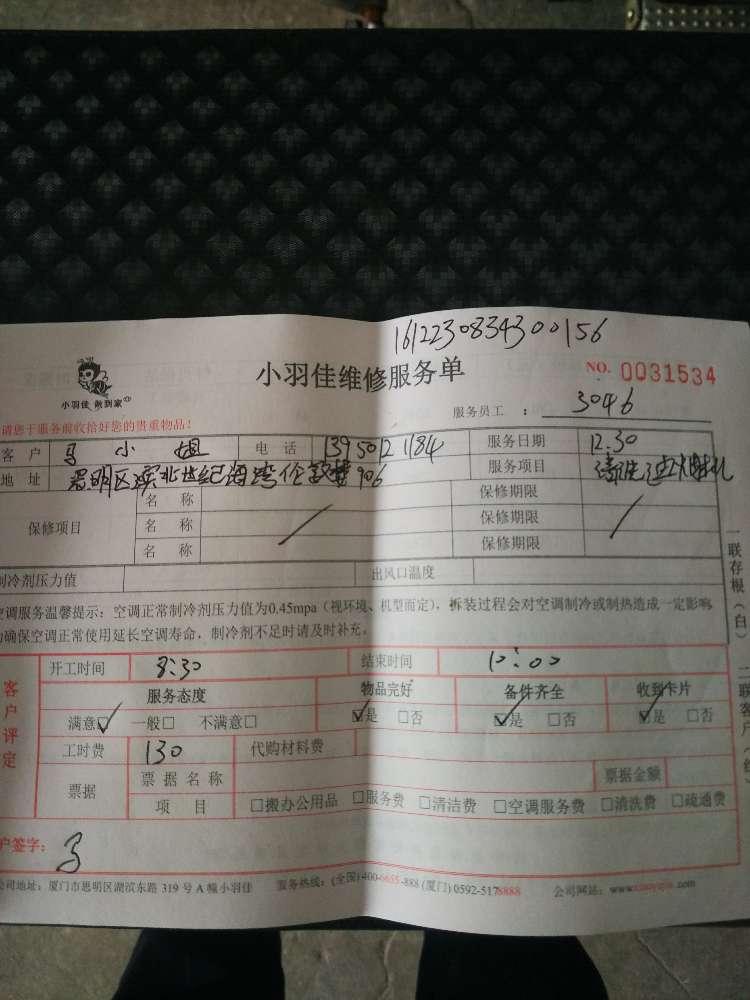 161223083430 0156
小羽佳维修服务单
NO. 0031534
小羽佳 做到家
服务员工 : 3046
请您于服务前收拾好您的贵重物品!
客户 马小姐 电话 13950121184 服务日期 12.30
地址 思明区滨北世纪海湾伦敦楼906 服务项目 清洗
保修项目 名称 保修期限
名称 保修期限
名称 保修期限
制冷剂压力值 出风口温度
空调服务温馨提示:空调正常制冷剂压力值为0.45mpa(视环境、机型而定),拆装过程会对空调制冷或制热造成一定影响
为确保空调正常使用延长空调寿命,制冷剂不足时请及时补充。
客户评定
开工时间 8:30 结束时间 10:00
服务态度 物品完好 备件齐全 收到卡片
满意☑ 一般□ 不满意□ ☑是 □否 ☑是 □否 ☑是 □否
工时费 130 代购材料费
票据 票据名称 票据金额
项目 □搬办公用品 □服务费 □清洁费 □空调服务费 □清洗费 □疏通费
户签字: 马
公司地址:厦门市思明区湖滨东路 319 号 A 幢小羽佳 服务热线:(全国)400-6655-888 (厦门)0592-5178888 公司网站:www.xiaoyujia.com
一联存根(白)
二联客户